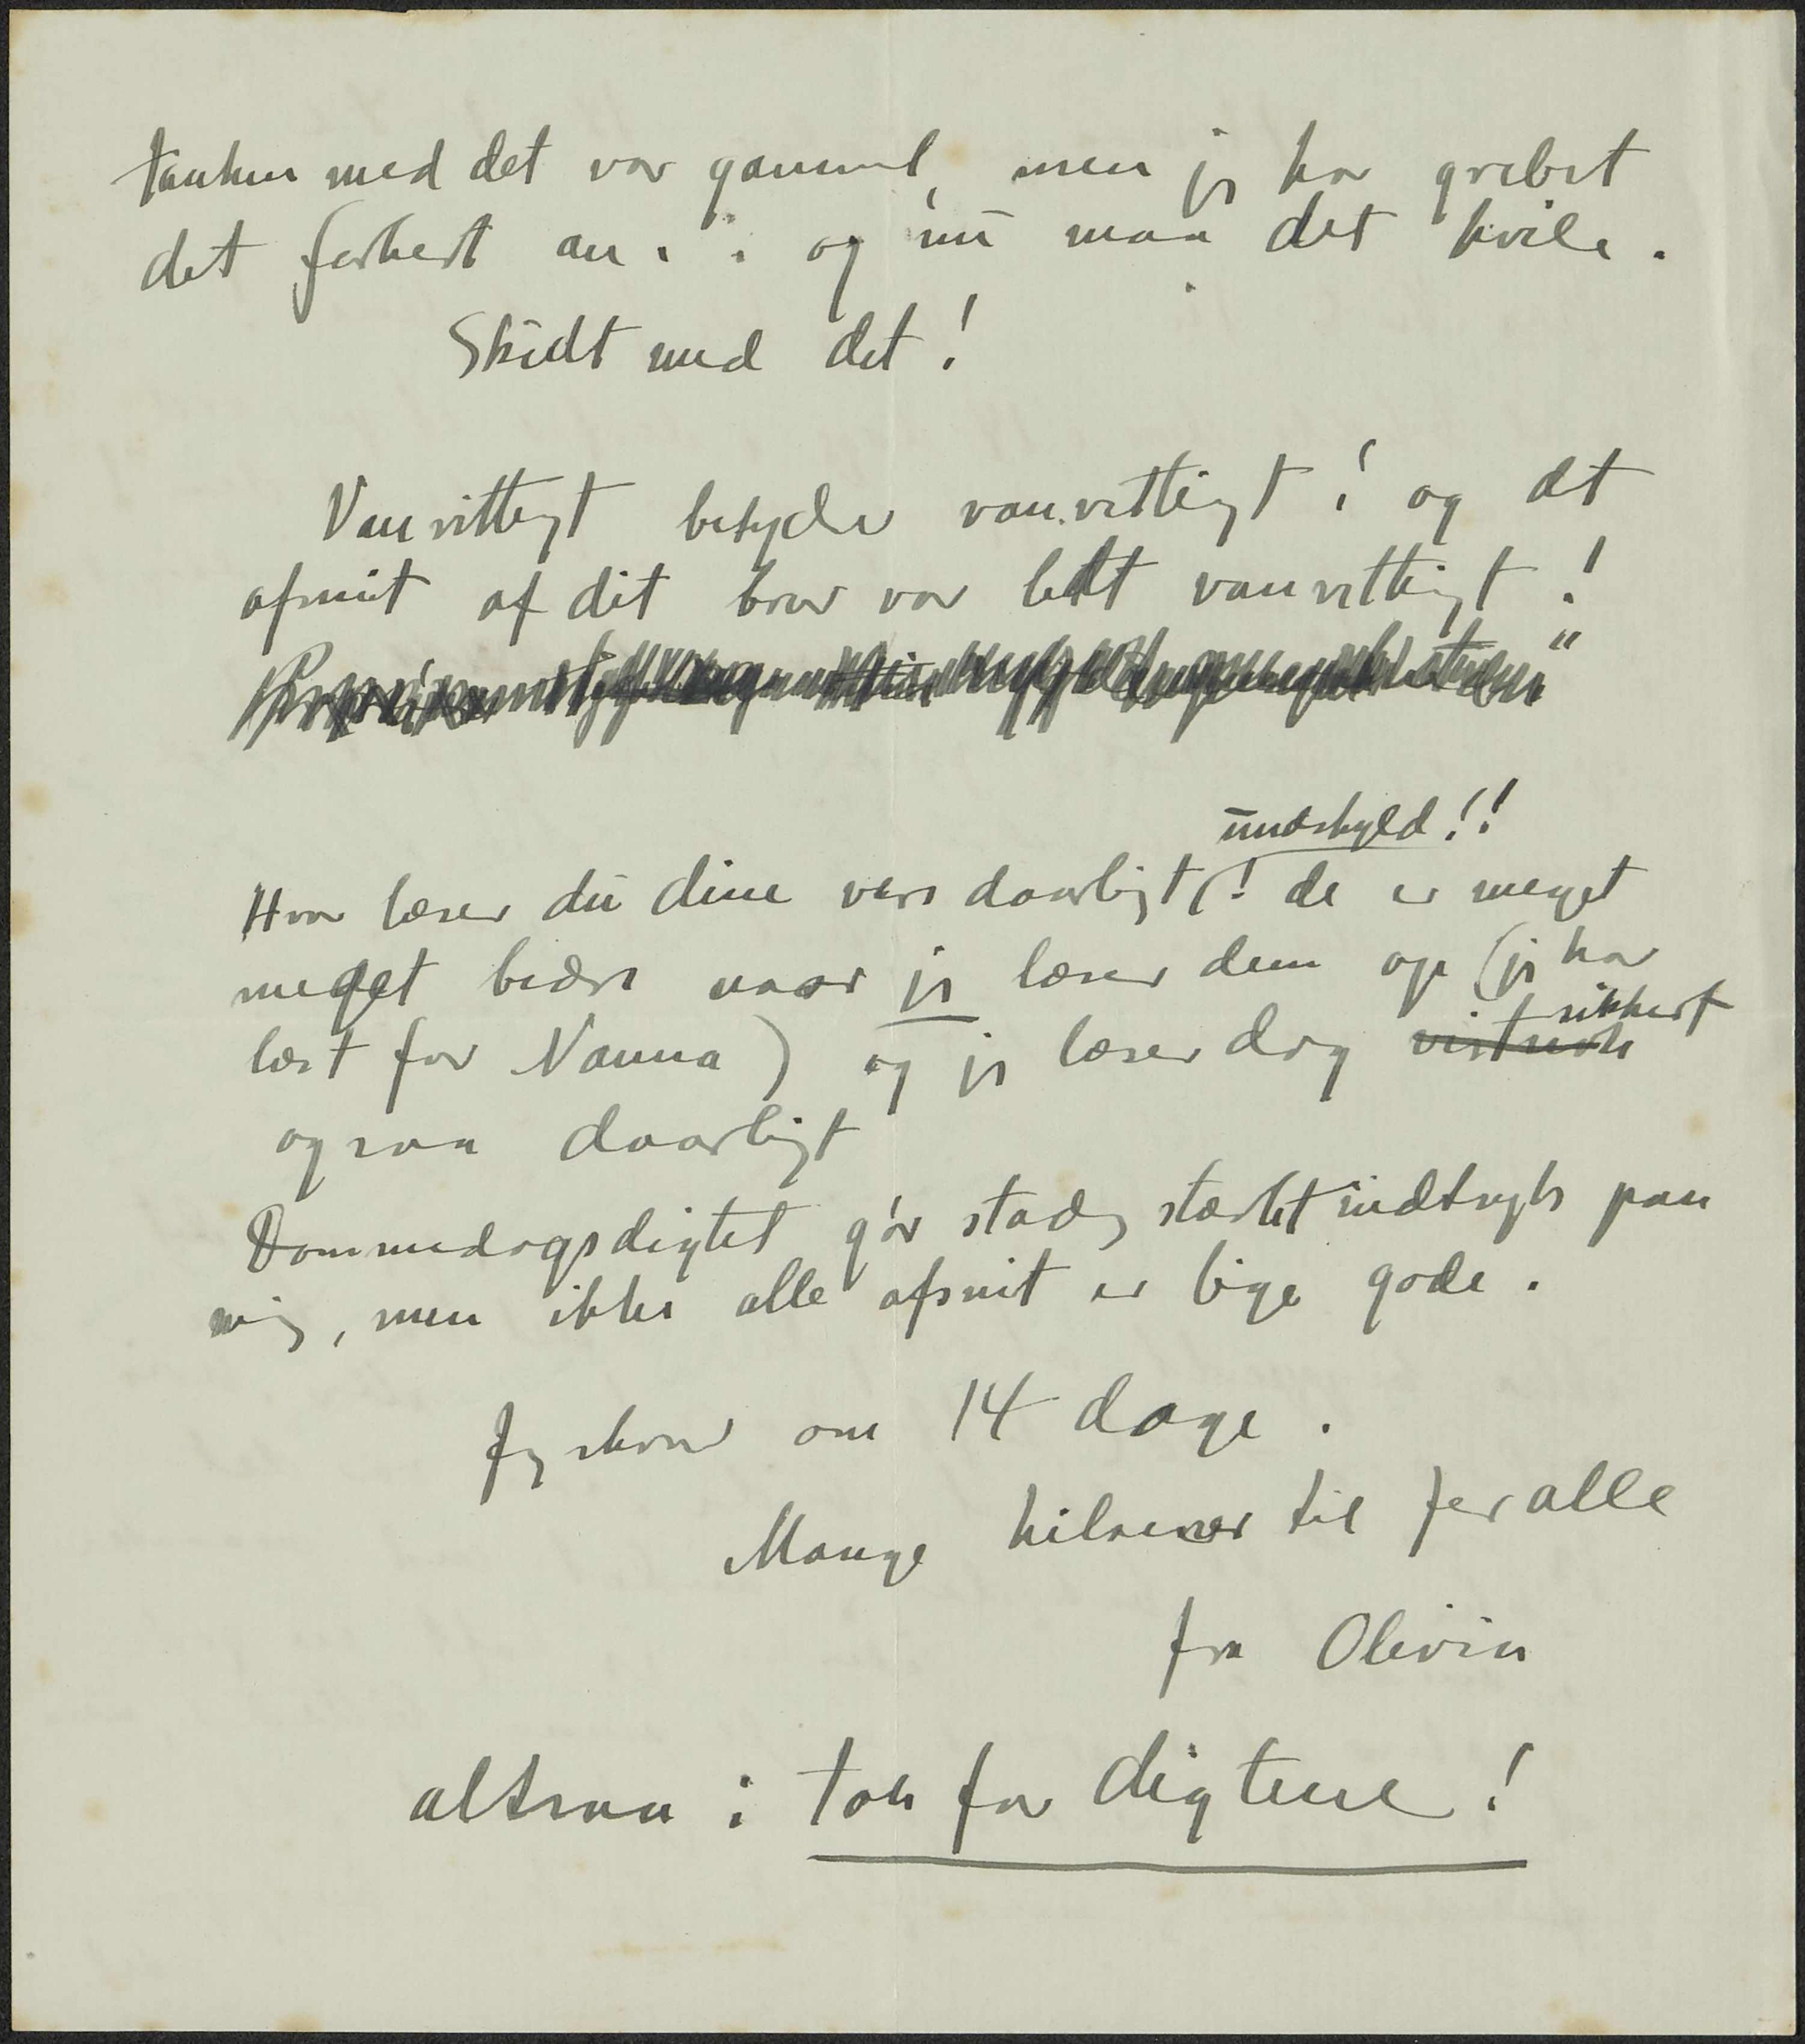 tanken med det var gammel, men jeg har grebet
det forkert an . . og nu maa det hvile .
Skidt med det !
Vanvittigt betyder vanvittigt ! og det
afsnit af dit brev var lidt vanvittigt !
undskyld !!
Hvor læser du dine vers daarligt ! de er meget
meget bedre naar jeg læser dem op (jeg har
læst for Nanna) og jeg læser dog vistnok sikkert
ogsaa daarligt
Dommedagsdigtet gør stadig stærkt indtryk paa
mig, men ikke alle afsnit er lige gode .
Jeg skriver om 14 dage .
Mange hilsener til jer alle
fra Olivia
altsaa : tak for digtene !